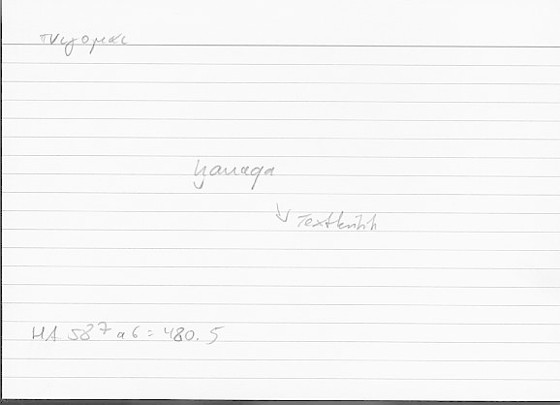 πνίγομαι
ḫanaqa
↓ Textkritik
HA 587 a6 = 480.5